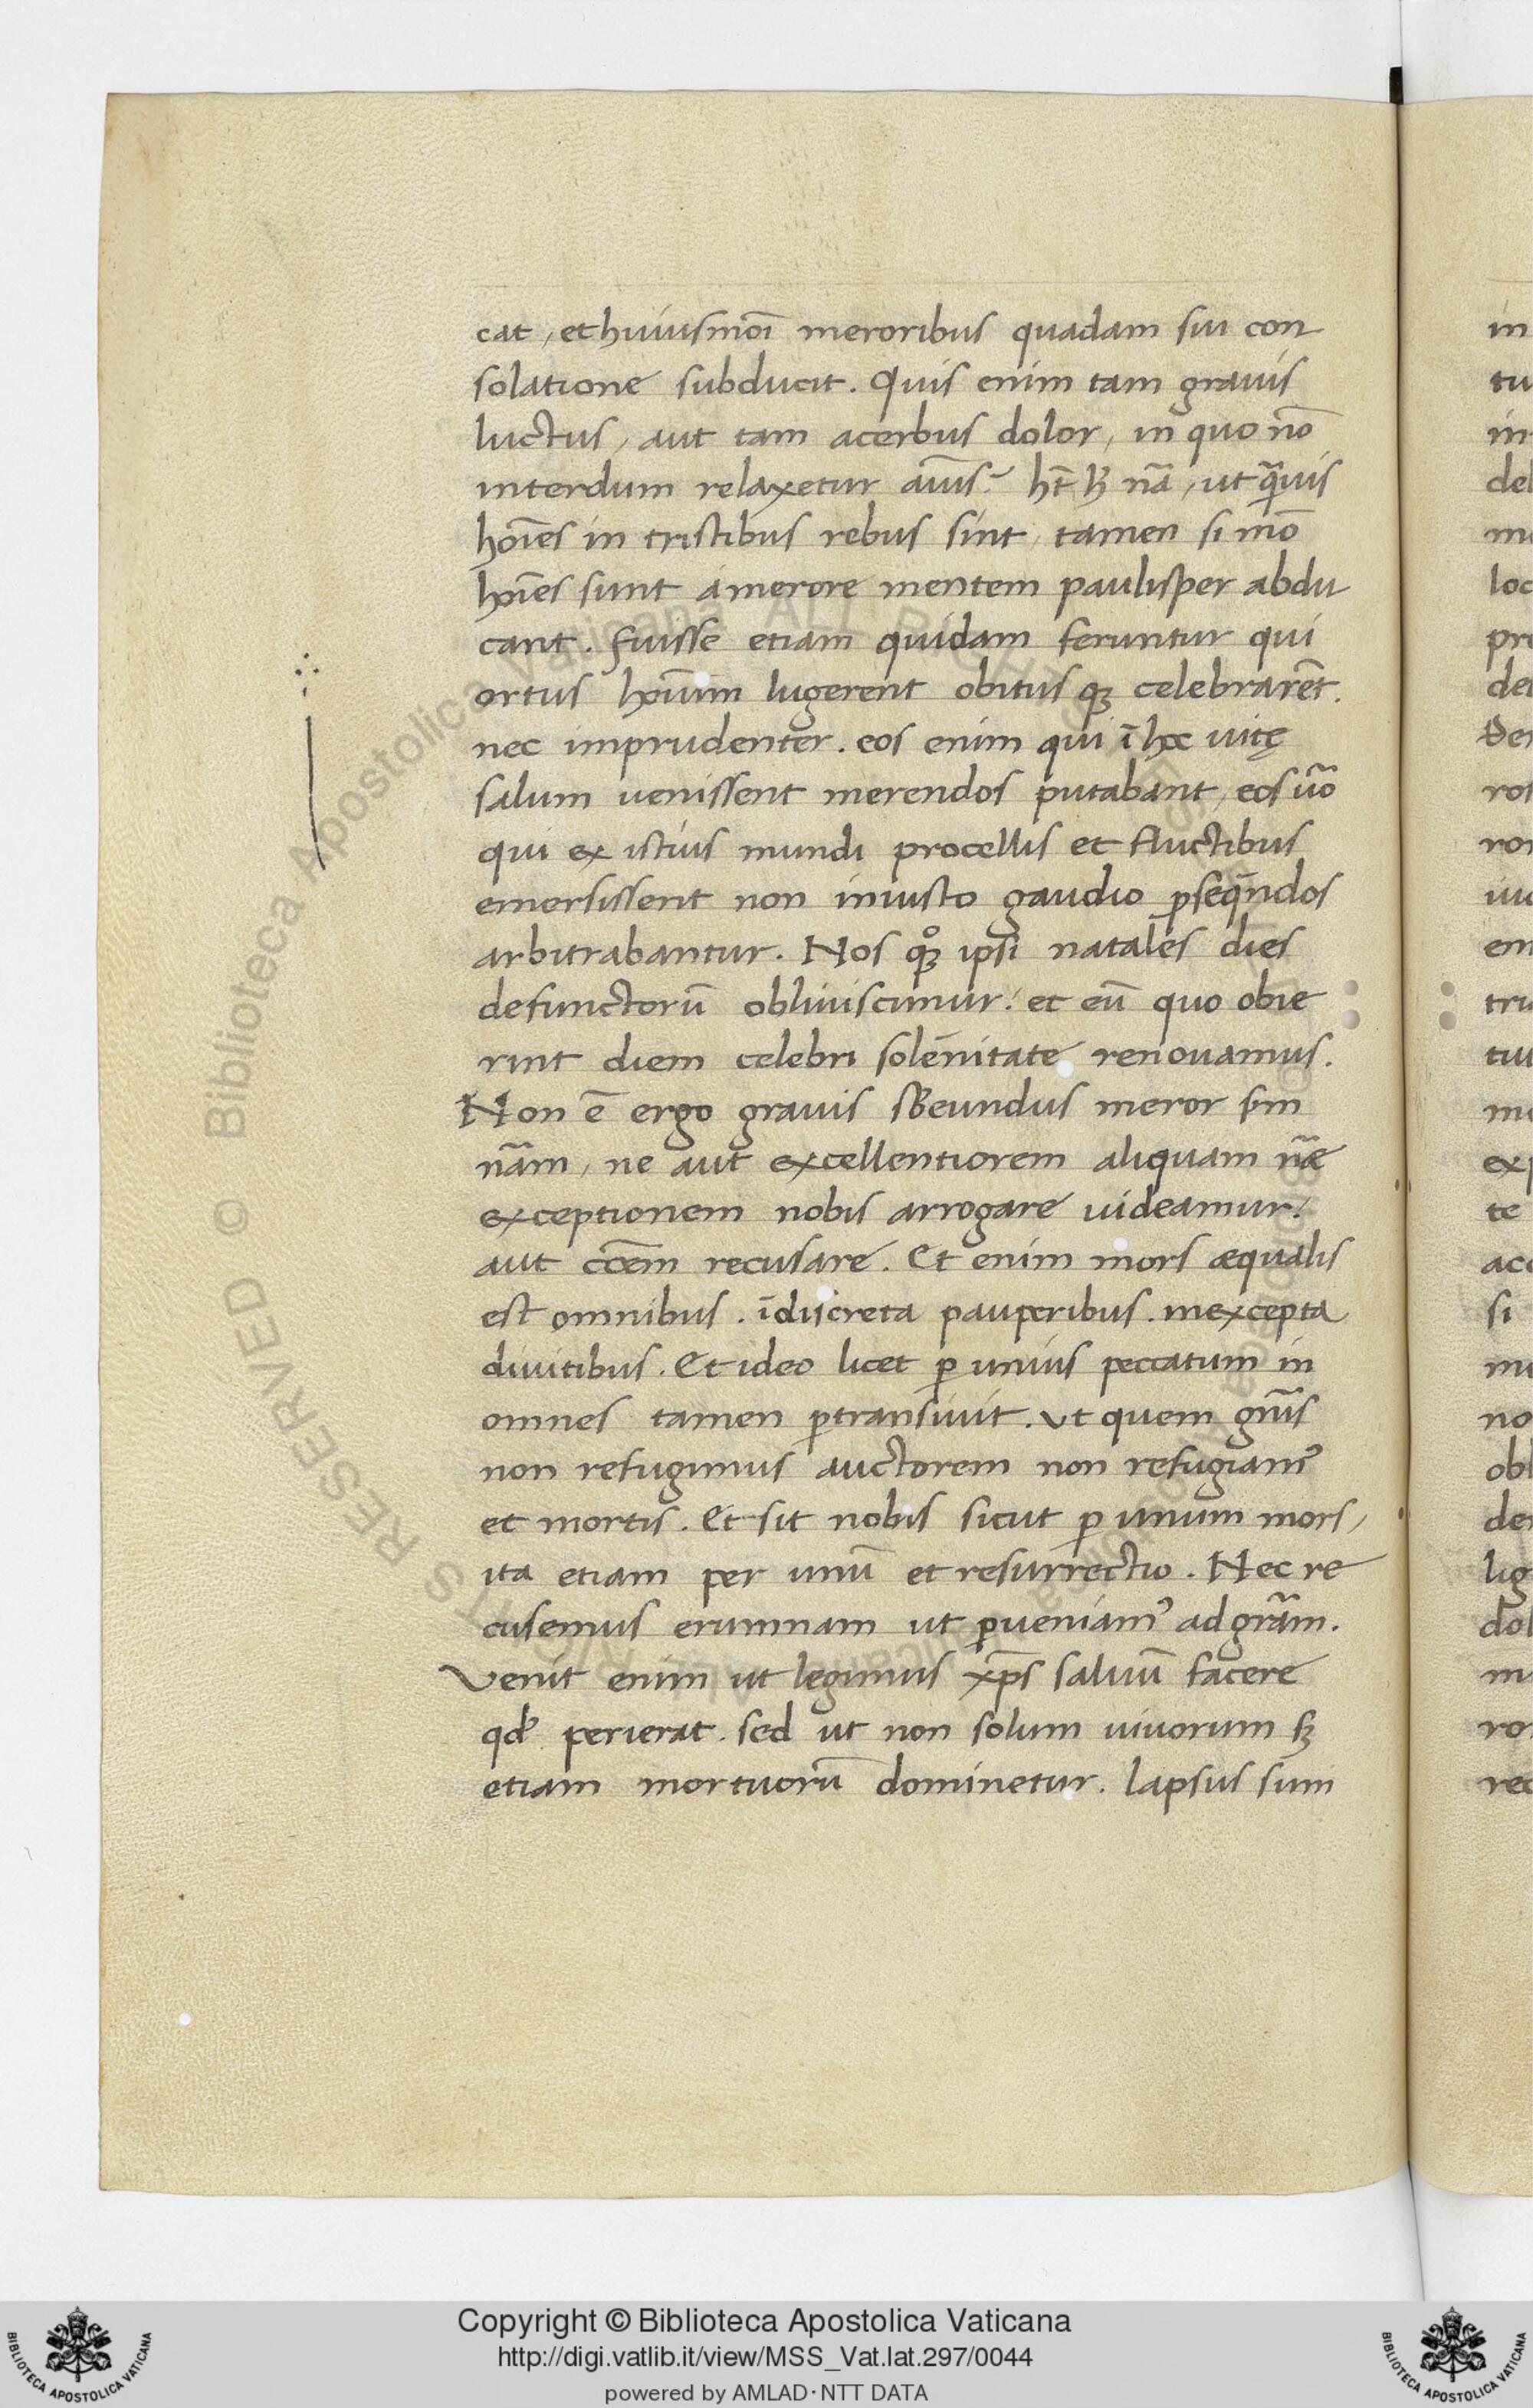 cat, et huiusmōi meroribus quadam sui con
solatione subducit. Quis enim tam grauis
luctus, aut tam acerbus dolor, in quo nō
interdum relaxetur aīus? hȳt h̄ nā, ut q̄uis
hōies in tristibus rebus sint, tamen si mō
hōies sunt á merore mentem paulisper abdu
cant. fuisse etiam quidam feruntur qui
ortus hoīum lugerent obitus qꝫ celebrarēt.
nec imprudenter. eos enim qui ī hoc uitę
salum uenissent merendos putabant, eos ūo
qui ex istius mundi procellis et fluctibus
emersissent non iniusto gaudio ꝑseqn̄dos
arbitrabantur. Nos qꝫº ipsi natales dies
defunctorū obliuiscimur: et eū quo obie
rint diem celebri solēnitate renouamus.
Non ē ergo grauis sƀeundus meror sm
nām, ne aut excellentiorem aliquam nāe
exceptionem nobis arrogare uideamur:
aut cc̄em recusare. Et enim mors æqualis
est omnibus. īdiscreta pauperibus. inexcepta
diuitibus. Et ideo licet ꝑ unius peccatum in
omnes tamen ꝑtransiuit. ut quem gn̄is
non refugimus auctorem non refugiamꝰ
et mortis. Et sit nobis sicut ꝑ unum mors,
ita etiam per unū et resurrectio. Nec re
cusemus erumnam ut ꝑueniamꝰ ad grām.
Venit enim ut legimus xp̄s saluū facere
qđ perierat. sed ut non solum uiuorum sꝫ
etiam mortuorū dominetur. lapsus sum
in
tu
in
del
loc
pre
de
Der
rot
ror
em
tru
exp
te
acc
si
no
obl
de
lig
dol
ro
rec
© Biblioteca Apostolica Vaticana ALL RIGHTS RESERVED
Copyright © Biblioteca Apostolica Vaticana
http://digi.vatlib.it/view/MSS_Vat.lat.297/0044
powered by AMLAD・NTT DATA
BIBLIOTECA APOSTOLICA VATICANA
BIBLIOTECA APOSTOLICA VATICANA